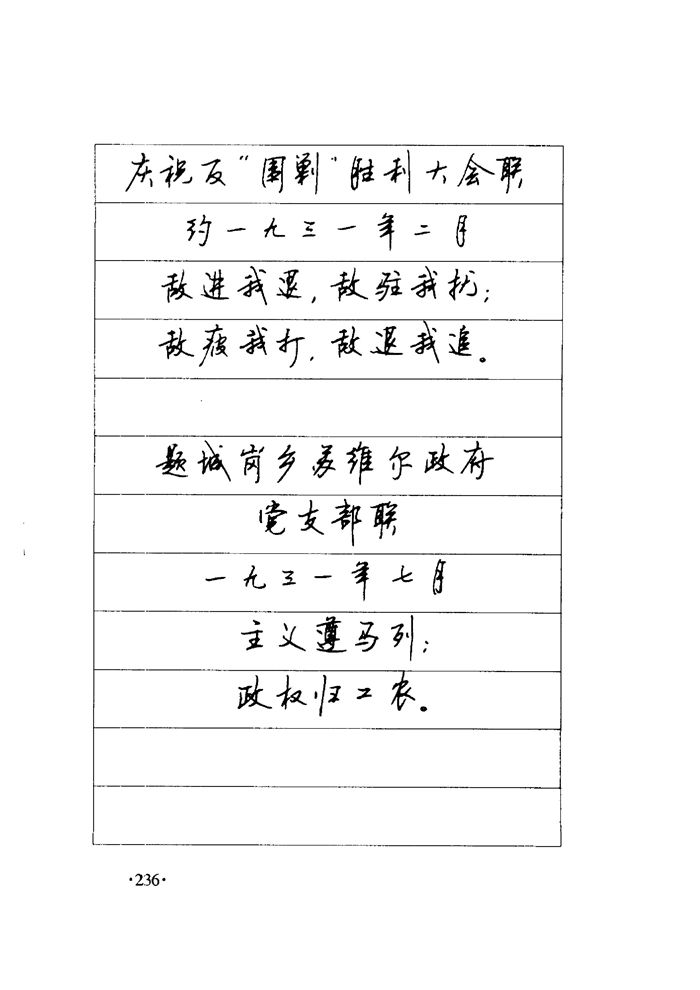 庆祝反“围剿”胜利大会联
约一九三一年二月
敌进我退，敌驻我扰；
敌疲我打，敌退我追。
题城岗乡苏维尔政府
党支部联
一九三一年七月
主义遵马列；
政权归工农。
·236·